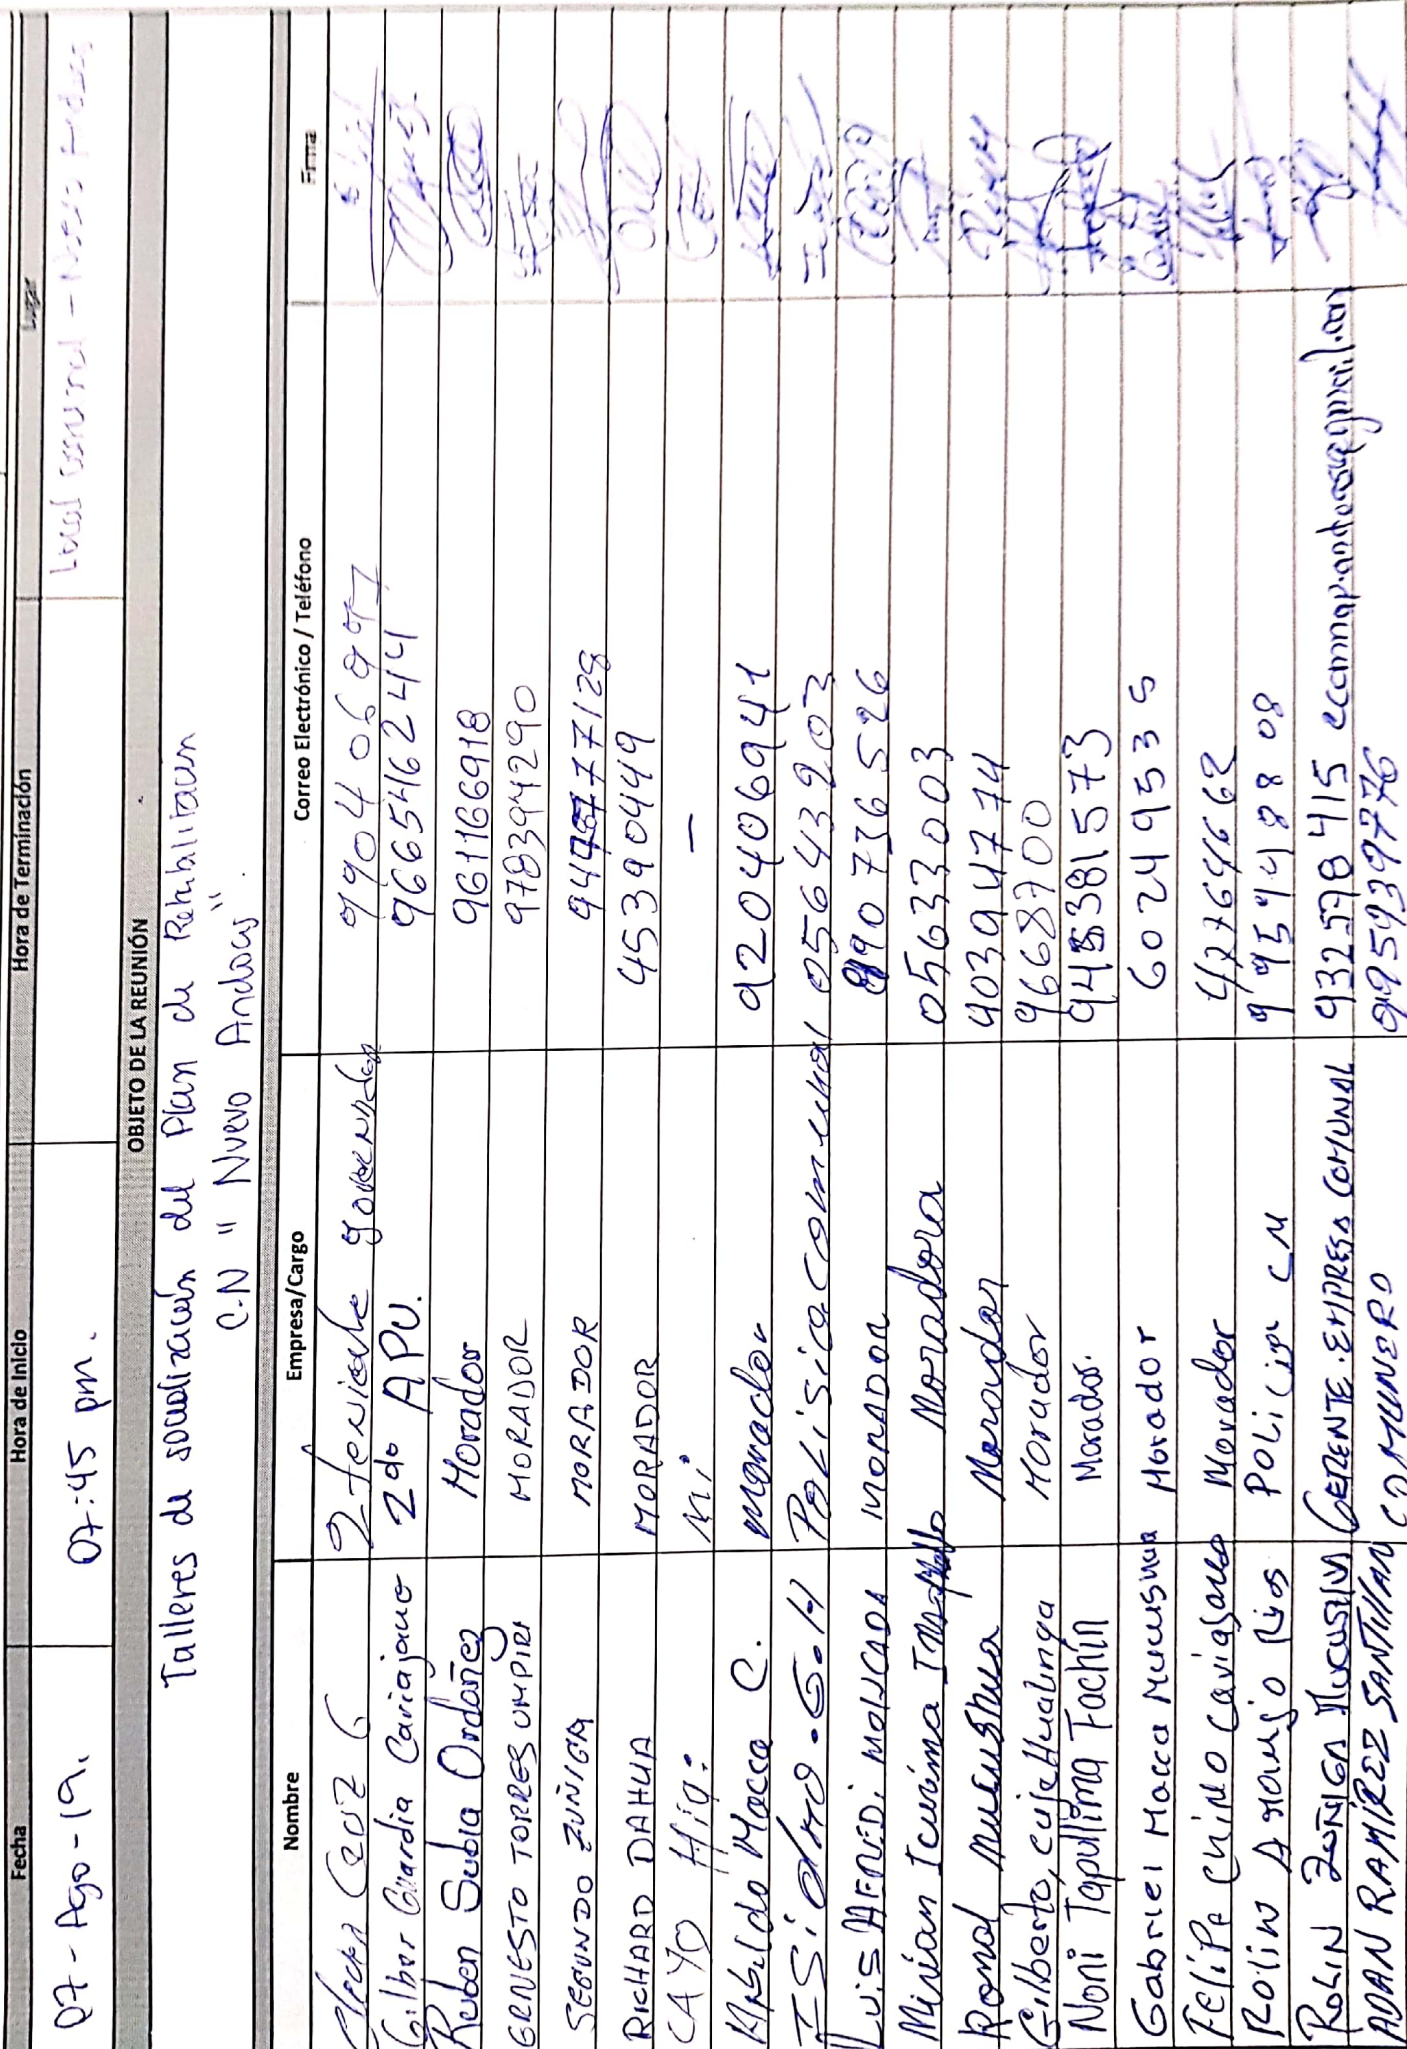 Fecha Hora de Inicio Hora de Terminación Lugar
07-Ago-19. 07:45 pm. Local comunal - Nuevo Andoas
OBJETO DE LA REUNIÓN
Talleres de socialización del Plan de Rehabilitacion
C.N " Nuevo Andoas".
Nombre Empresa/Cargo Correo Electrónico / Teléfono Firma
Cruz G 2 teniente governador
Gilbor Guardia Cariajano 2do APU.966546244
Ruben Subia Ordoñez Morador 961166918
ERNESTO TORRES UMPIRI MORADOR 978394290
SEGUNDO ZUÑIGA MORADOR
RICHARD DAHUA MORADOR 45390449
CAYO —
Arsildo Macca C. morador 920406941
ISidro.G.H Polisica comunal 05643902
Luis MONRADOR 990736526
Mirian Icurima Moradora 05633003
Romal Mucushua Morador 40394774
Gilberto, cuje Hualinga Morador 9668700
Noni Tapullima Fachín Morador. 945381573
Gabriel Macca Mucushua Morador 60249535
Felipe Chino Cariajano Morador 47764662
Roilin Araujo Rios Policija CM 995948808
Rolin ZUÑIGA GERENTE. EMPRESA COMUNAL 932598415
ADAN RAMÍREZ SANTILLAN COMUNERO 995939776